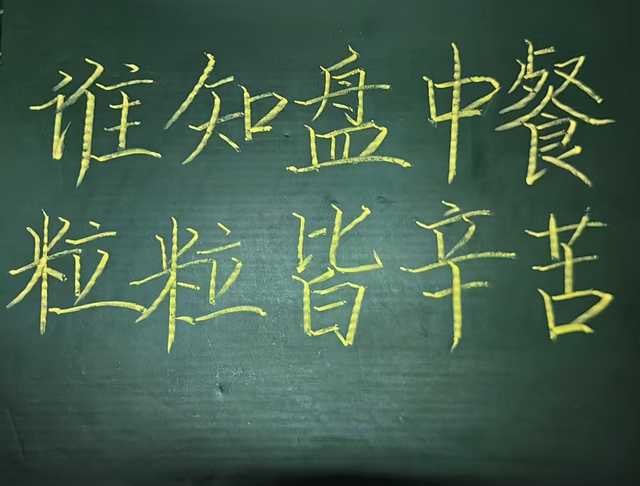 谁知盘中餐
粒粒皆辛苦